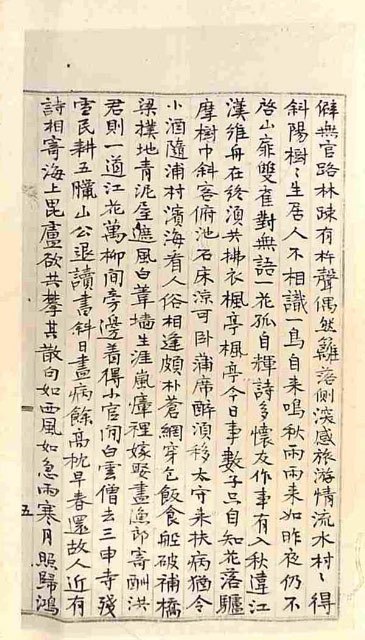 僻無官路林疎有杵聲偶然籬落側深感旅游情流水村〻得
斜陽樹〻生居人不相識一鳥自来鳴秋雨雨来如昨夜仍不
啓山扉雙雀對無語一花孤自輝詩多懷友作事有入秋違江
漢維舟在終須共拂衣楓亭楓亭今日事數子只自知花落驢
摩樹巾斜客俯池石床涼可卧蒲席醉須移太守来扶病猶令
小酒隨浦村濱海看人俗相逢頗朴蒼網穿乞飯食舩破補橋
梁樸地青泥屋譙風白葦墻生涯嵐瘴裡嫁娶盡漁郎寄酬洪
君則一道江花萬柳間旁邊着得小官閒白雲僧去三申寺殘
雪民耕五臘山公退讀書斜日盡病餘高枕早春還故人近有
詩相寄海上毘盧欲共攀其散句如西風如急雨寒月照歸鴻
五